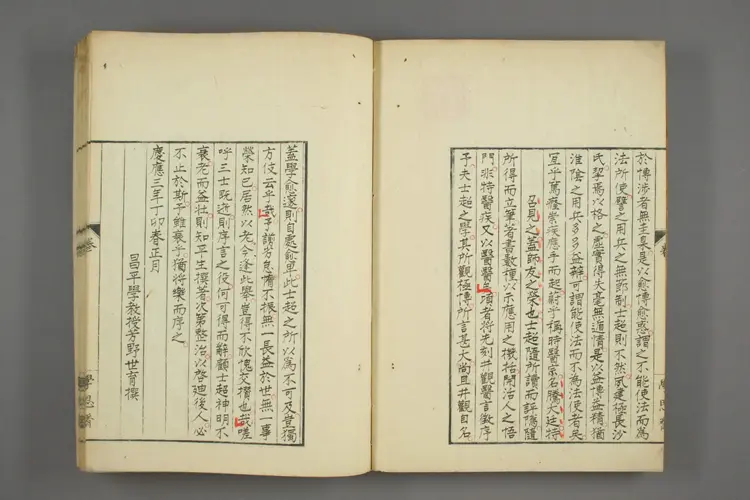 於博涉者無主臬是以愈博愈惑謂之不能使法而為
法所使譬之用兵之無節制士起則不然夙建極長沙
氏挈焉以格之虛實得失毫無遁情是以益博益精猶
淮陰之用兵多多益辦可謂能使法而不為法使者矣
宜乎萬癃崇疾應手而起尉乎稱時醫宗名騰大邇特
吾見之蓋師友之榮也士起隨所讀而評隲隨
所得而立筆著書數種以示應用之機括開活人之悟
門非特醫疾又以醫醫已頃者將先刻井觀醫言徵序
予夫士起之學其所觀極博所言甚大尚且井觀自名
蓋學愈邃則自處愈卑此士起之所以為不可及豈獨
方伎云乎哉予譾劣怠惰不振無一長益於世無一事
榮知己居然以老今逢此舉豈得不欣愧交攢也哉嗟
呼三士既逝則序言之役何可得而辭顧士起神明不
衰老而益壯則知平生撰著次第整治以啓迪後人必
不止於斯予雖衰乎猶將樂而序之
慶應三年丁卯春正月
昌平學教授芳野世育撰